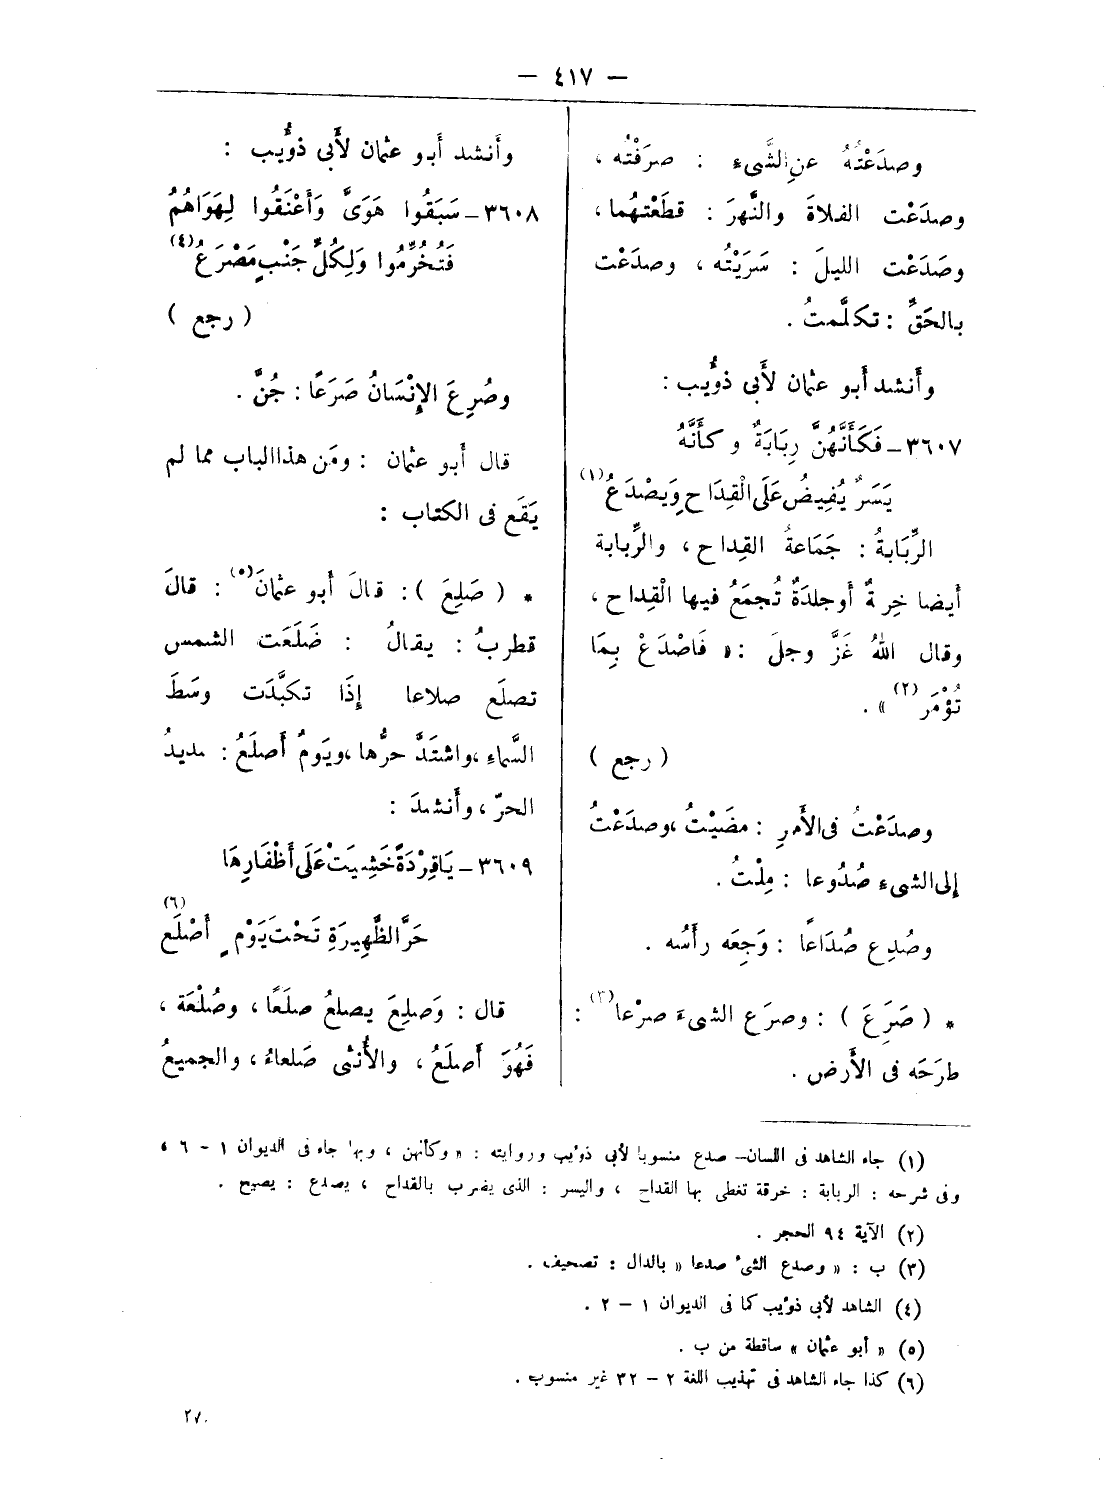 — ٤١٧ —
وصدَعْتُهُ عنِ الشَّىءِ : صرَفْتُه ،
وصدَعْت الفلاةَ والنَّهرَ : قطَعْتهُما ،
وصَدَعْت الليلَ : سَرَيْتُه ، وصدَعْت
بالحَقِّ : تكلَّمتُ .
وأَنشد أَبو عثمان لأَبى ذوُّيب :
٣٦٠٧ – فَكَأَنَّهُنَّ رِبَابَةٌ وكأَنَّهُ
يَسَرٌ يُفِيضُ عَلَى الْقِدَاحِ وَيَصْدَعُ (١)
الرِّبَابَةُ : جَمَاعةُ القِداح ، والرِّبابة
أيضا خِرقةٌ أوجلدَةٌ تُجمَعُ فيها الْقِداح ،
وقال اللهُ عَزَّ وجلَ : « فَاصْدَعْ بِمَا
تُؤْمَر (٢) » .
( رجع )
وصدَعْتُ فى الأَمرِ : مضَيْتُ ، وصدَعْتُ
إلى الشىءِ صُدُوعا : مِلْتُ .
وصُدِع صُدَاعاً : وَجِعَه رأَسُه .
* ( صَرَعَ ) : وصرَع الشىءَ صرْعا (٣) :
طرَحَه فى الأَرض .
وأَنشد أَبو عثمان لأَبى ذوُّيب :
٣٦٠٨ – سَبَقُوا هَوَىَّ وَأَعْنَقُوا لِهَوَاهُمُ
فَتُخُرِّمُوا وَلِكُلِّ جَنْبٍ مَصْرَعُ (٤)
( رجع )
وصُرِعَ الإِنْسَانُ صَرَعًا : جُنَّ .
قال أَبو عثمان : ومَن هذا الباب مما لم
يَقَع فى الكتاب :
* ( صَلِعَ ) : قالَ أَبو عثمانَ (٥) : قالَ
قطربُ : يقالُ : صَلَعَت الشمس
تصلَع صلاعا إِذَا تكبَّدَت وسَطَ
السَّماءِ ، واشتَدَّ حرُّها ، ويَومُ أَصلَعُ : شديدُ
الحرّ ، وأَنشدَ :
٣٦٠٩ – يَاقِرْدَةً خَشِيَتْ عَلَى أَظْفَارِهَا
حَرَّ الظَّهِيرَةِ تَحْتَ يَوْمٍ أَصْلَع (٦)
قال : وَصلِعَ يصلعُ صلَعًا ، وصُلْعَة ،
فَهُوَ أَصلَعُ ، والأُنثى صَلعاءُ ، والجميعُ
(١) جاء الشاهد فى اللسان – صدع منسوبا لأبي ذؤيب وروايته : « وكأنهن ، وبها جاء فى الديوان ١ – ٦ ،
وفى شرحه : الربابة : خرقة تغطى بها القداح ، واليسر : الذى يضرب بالقداح ، يصدع : يصيح .
(٢) الآية ٩٤ الحجر .
(٣) ب : « وصدع الشىء صدعا » بالدال : تصحيف .
(٤) الشاهد لأبي ذؤيب كما فى الديوان ١ – ٢ .
(٥) « أبو عثمان » ساقطة من ب .
(٦) كذا جاء الشاهد فى تهذيب اللغة ٢ – ٣٢ غير منسوب .